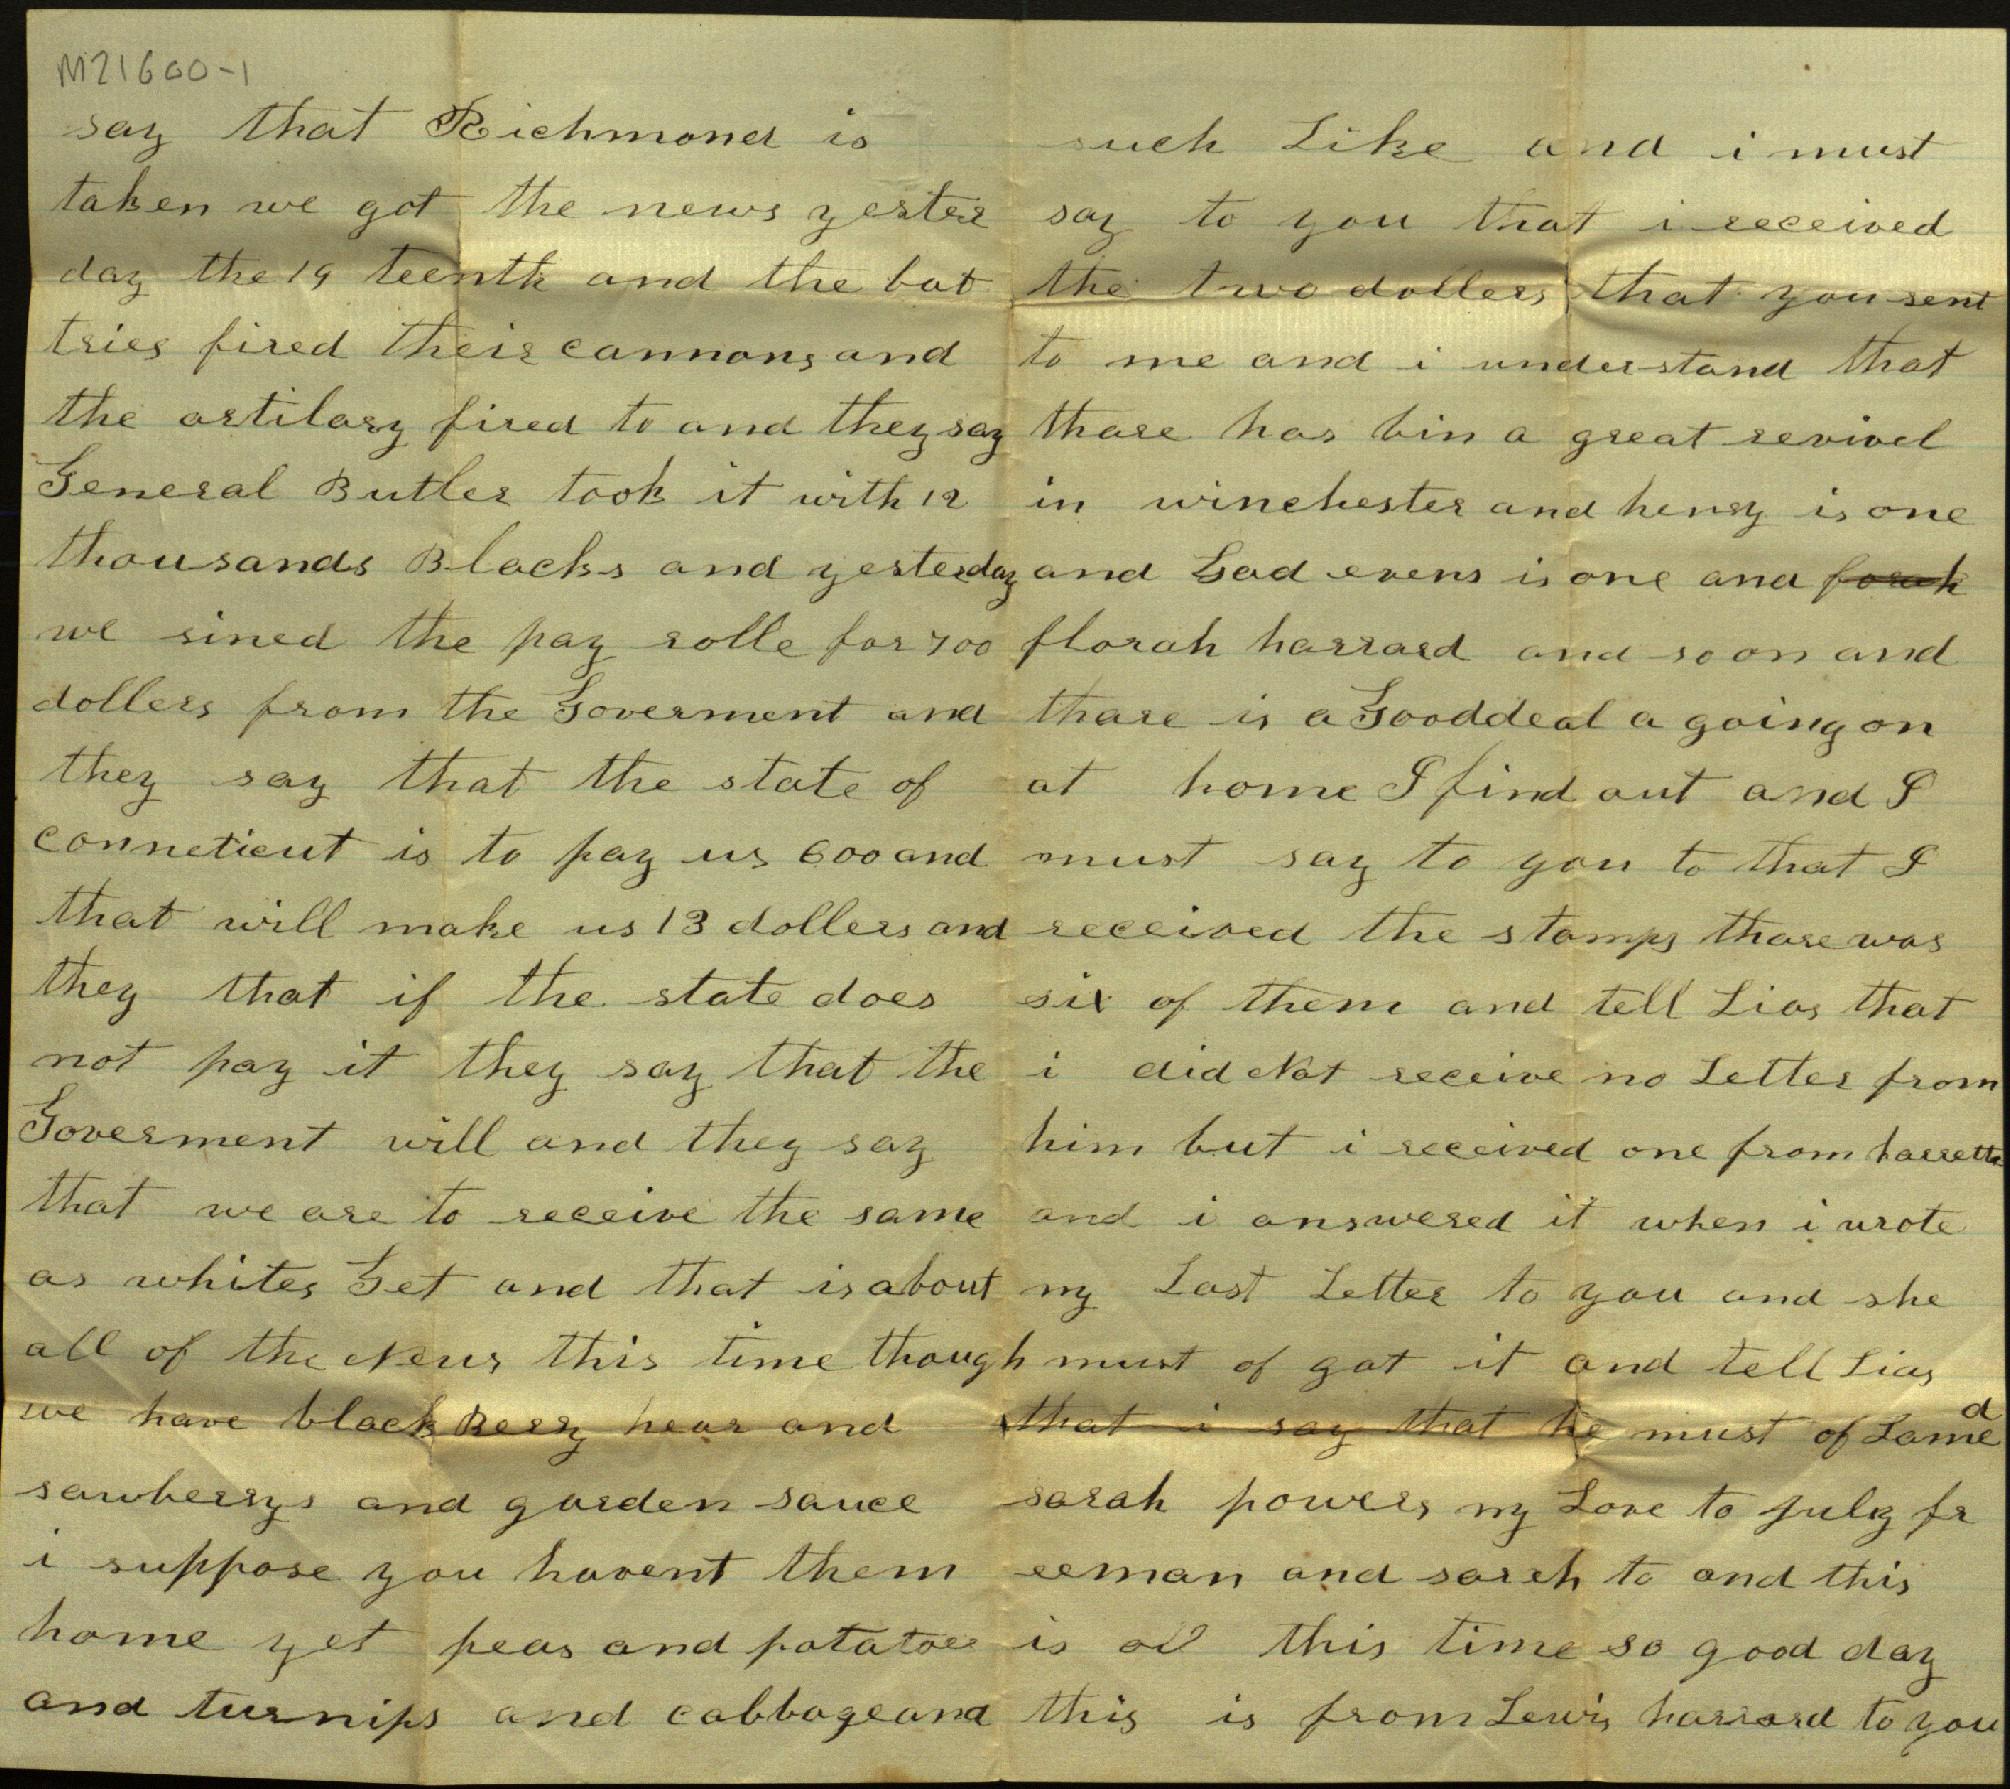 M21600-1
say that Richmond is
taken we got the news yester
day the 19 teenth and the bat
tries fired their cannons and
the artilary fired to and they say
General Butler took it with 12
thousands Blacks and yesterday
we sined the pay rolle for 700
dollers from the Goverment and
they say that the state of
conneticut is to pay us 600 and
that will make us 13 dollers and
they that if the state does
not pay it they say that the
Goverment will and they say
that we are to receive the same
as whites Get and that is about
all of the News this time though
we have black Berry hear and
sawberrys and garden sauce
i suppose you havent them
home yet peas and potatoes
and turnips and cabbage and
such Like and i must
say to you that i received
the two dollers that you sent
to me and i understand that
thare has bin a great revivel
in winchester and henry is one
and Gad evens is one and forah
florah harrard and so on and
thare is a Good deal a going on
at home I find out and I
must say to you to that I
received the stamps thare was
six of them and tell Lias that
i did Not receive no Letter from
him but i received one from
and i answered it when i wrote
my Last Letter to you and she
must of got it and tell Lias
that i say that he must of Lamed
sarah powers my Love to july fr
eeman and sareh to and this
is all this time so good day
this is from Lewis harrard to you